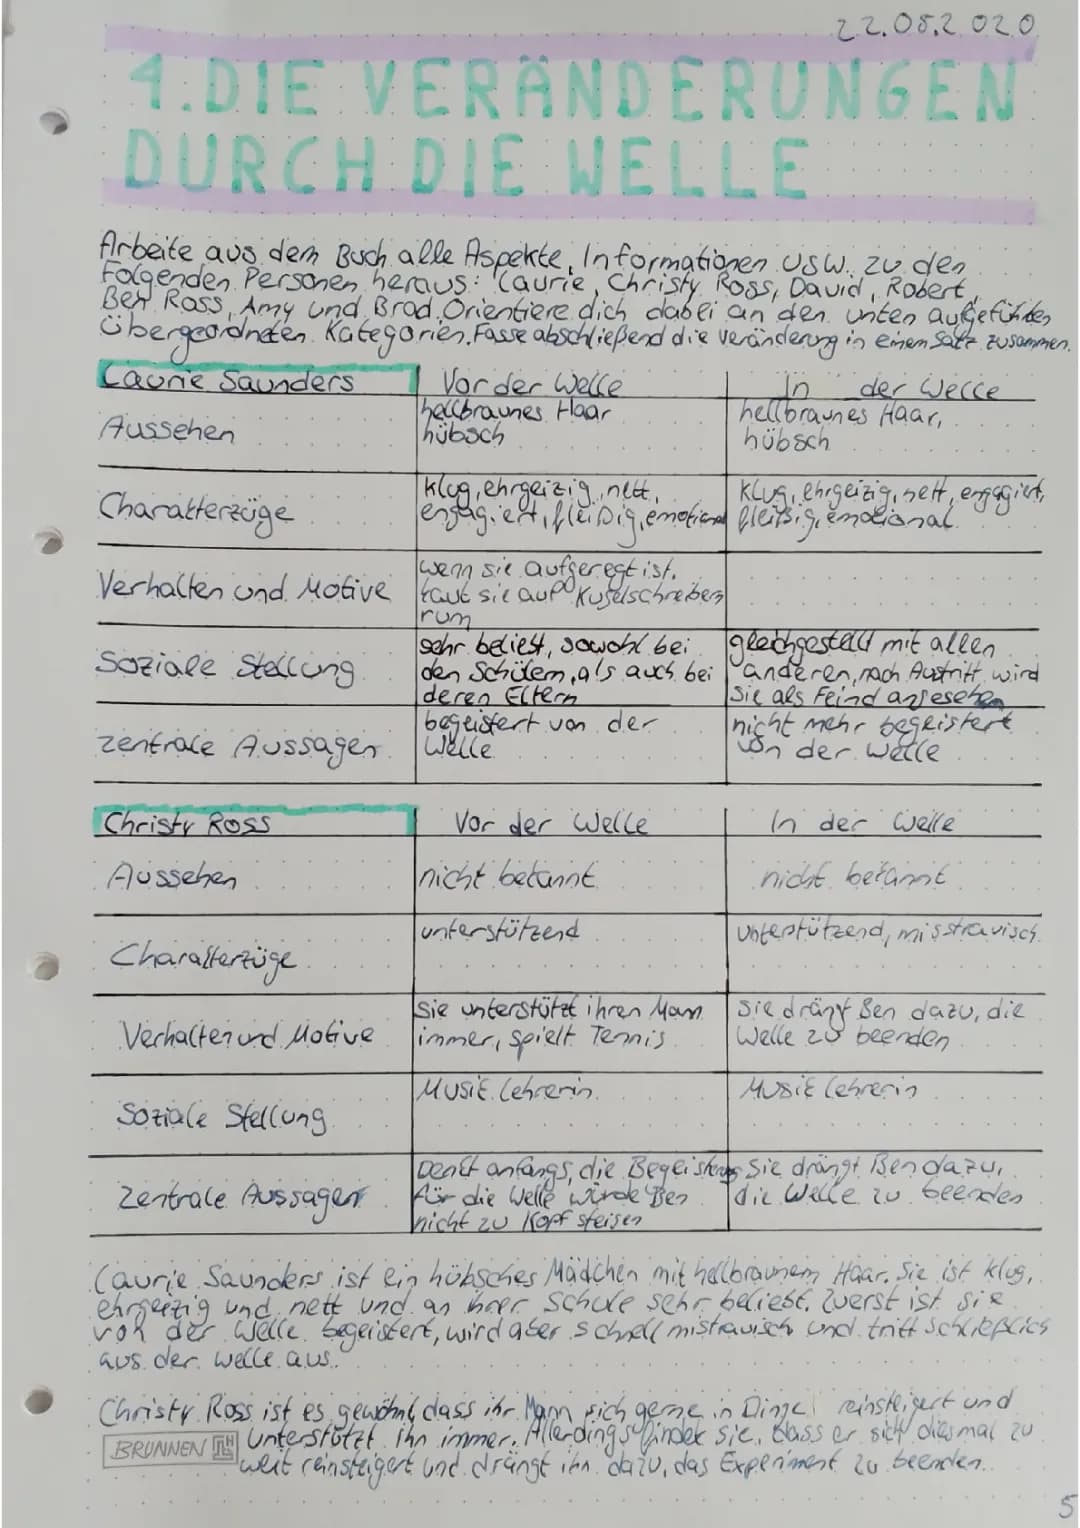 22.05.2020
4. DIE VERÄNDERUNGEN
DURCH DIE WELLE
Arbeite aus dem Buch alle Aspekte, Informationen usw. zu den
folgenden Personen heraus: Laurie, Christy Ross, David, Robert,
Ben Ross, Amy und Brad. Orientiere dich dabei an den unten aufgeführten
übergeordneten Kategorien. Fasse abschließend die Veränderung in einem Satz zusammen.
Laurie Saunders Vor der Welle In der Welle
Aussehen
hellbraunes Haar
hübsch
hellbraunes Haar,
hübsch
Charakterzüge
klug, ehrgeizig, nett,
engagiert, fleißig, emotional
klug, ehrgeizig, nett, engagiert,
fleißig, emotional
Verhalten und Motive
wenn sie aufgeregt ist,
kaut sie auf Kugelschreibern
rum
Soziale Stellung
sehr beliebt, sowohl bei
den Schülern, als auch bei
deren Eltern
gleichgestellt mit allen
anderen, nach Austritt wird
sie als Feind angesehen
zentrale Aussagen
begeistert von der
Welle
nicht mehr begeistert
von der Welle
Christy Ross Vor der Welle In der Welle
Aussehen nicht bekannt nicht bekannt
Charakterzüge
unterstützend
unterstützend, misstrauisch
Verhalten und Motive
Sie unterstützt ihren Mann
immer, spielt Tennis
Sie drängt Ben dazu, die
Welle zu beenden
Soziale Stellung
Musik Lehrerin
Musik Lehrerin
Zentrale Aussagen
Denkt anfangs, die Begeisterung
für die Welle würde Ben
nicht zu Kopf steigen
Sie drängt Ben dazu,
die Welle zu beenden
Laurie Saunders ist ein hübsches Mädchen mit hellbraunem Haar. Sie ist klug,
ehrgeizig und nett und an ihrer Schule sehr beliebt. Zuerst ist sie
von der Welle begeistert, wird aber schnell mistrauisch und tritt schließlich
aus der Welle aus.
Christy Ross ist es gewöhnt, dass ihr Mann sich gerne in Dinge reinsteigert und
unterstützt ihn immer. Allerdings findet sie, dass er sich diesmal zu
BRUNNEN
weit reinsteigert und drängt ihn dazu, das Experiment zu beenden.
5